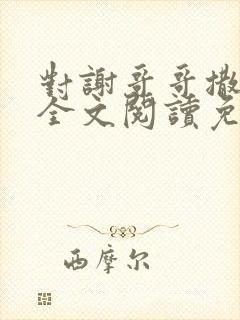 對謝哥哥撒
全文閱讀免
西摩尔